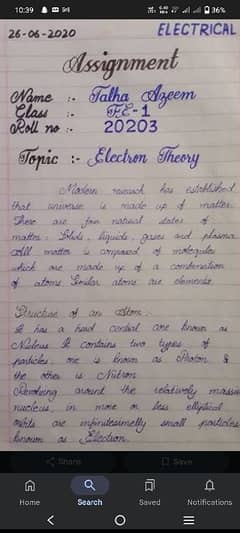 10:39
36%
26-06-2020 ELECTRICAL
Assignment
Name :- Talha Azeem
Class :- FE-1
Roll no :- 20203
Topic :- Electron Theory
Modern reseach has established
that universe is made up of matter.
There are four natural states of
matter: Solids, liquids, gases and plasma
All matter is composed of molequles
which are made up of a combenation
of atoms. Similar atoms are elements.
Structure of an Atom:
It has a hard central core known as
Nucleus It contains two types of
particles, one is known as Proton &
the other is Nutron.
Revolving around the relatively massive
nucleus, in more or less elliptical
orbits are infinitesimelly small particles
known as Electron.
Share Save
Home Search Saved Notifications